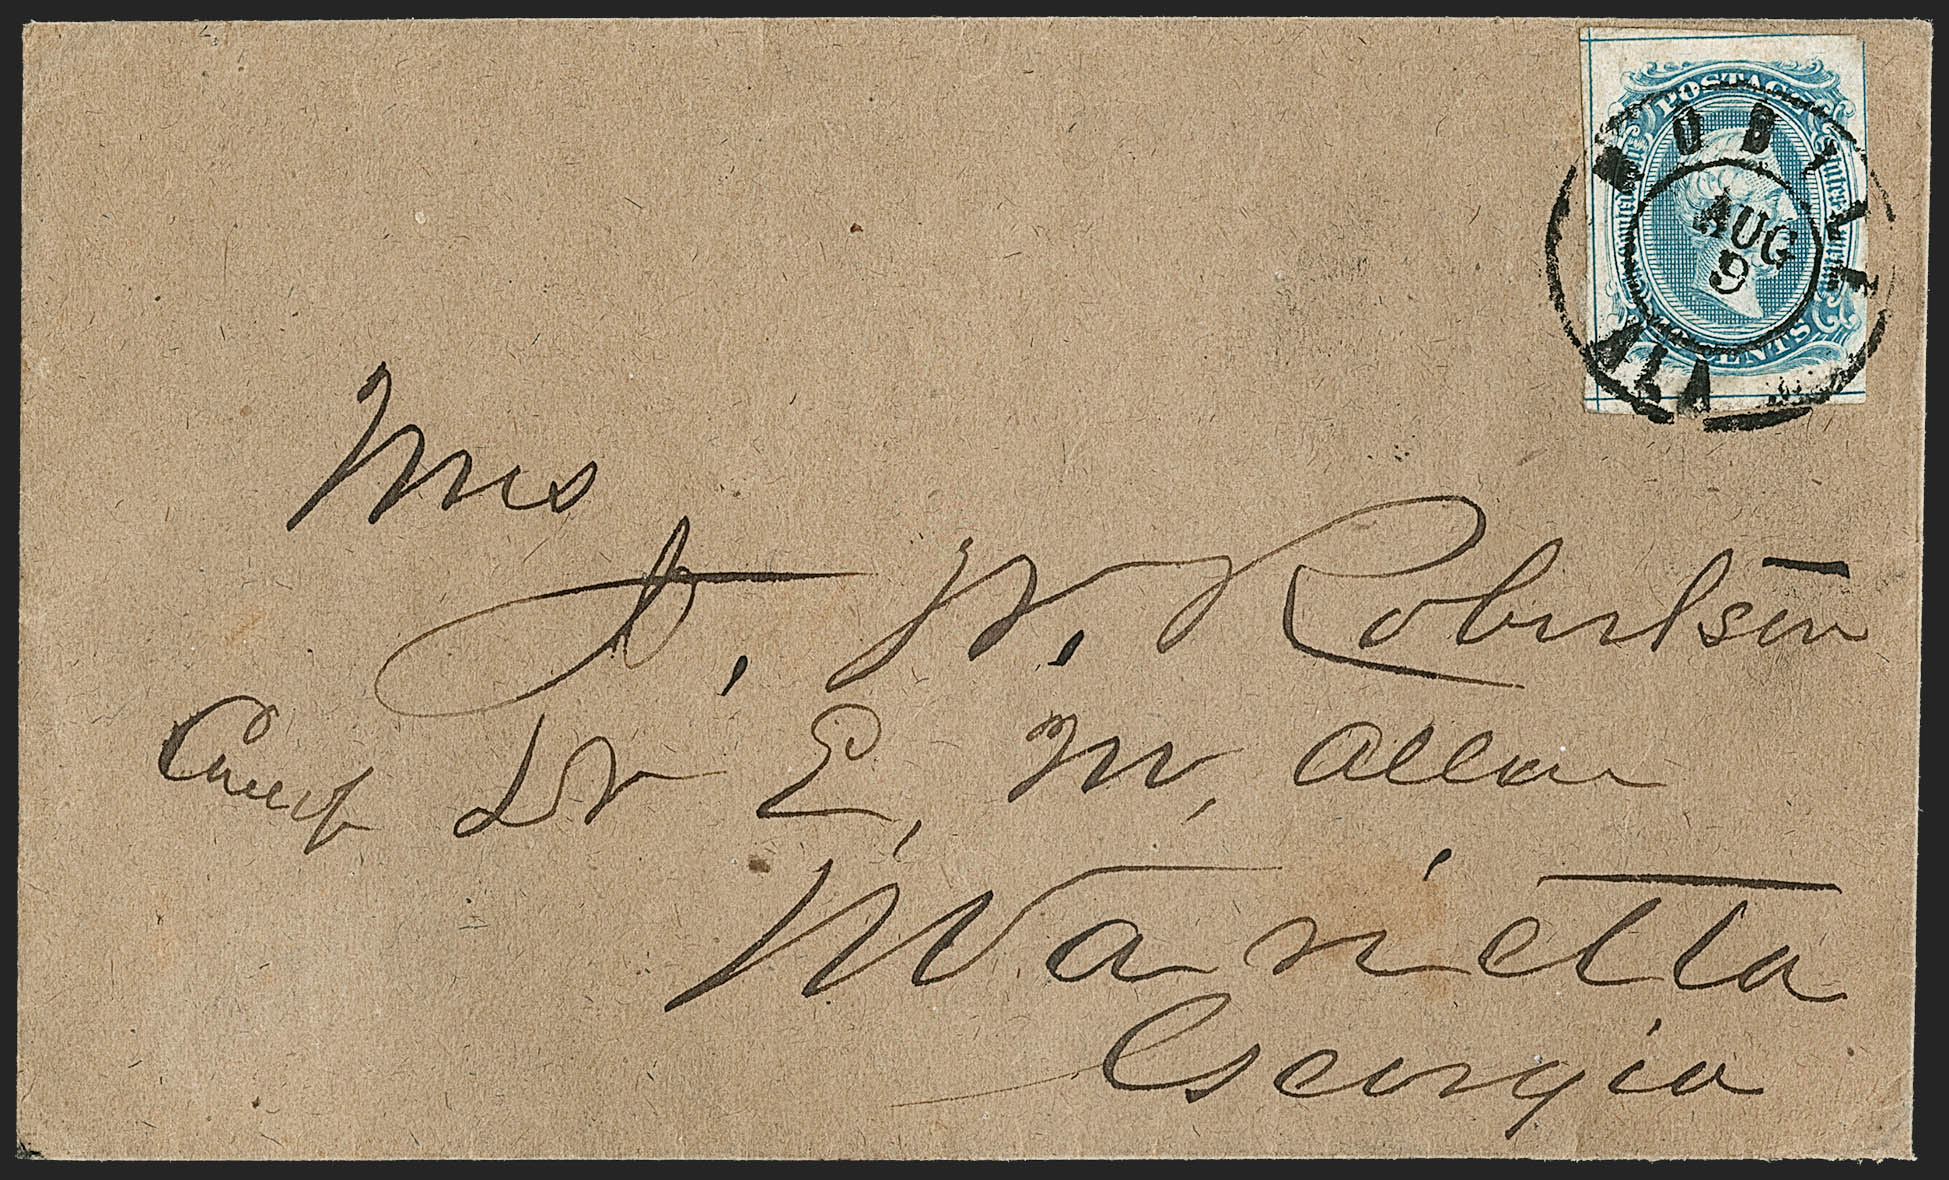 POSTAGE
CENTS
MOBILE
ALA
AUG
9
Mrs
J. W. Robertson
Care of Dr E. M. Allen
Marietta
Georgia